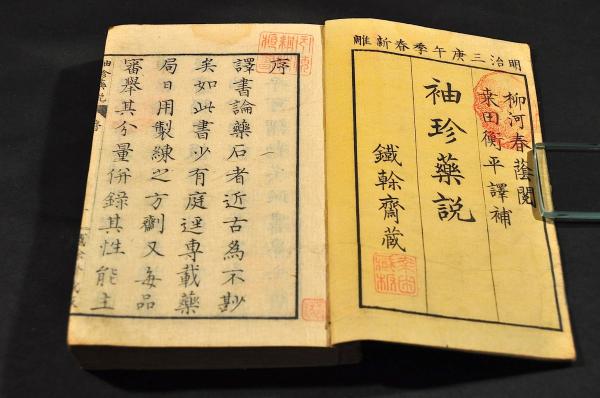 明治三庚午季春新雕
柳河春蔭閲
桒田衡平譯補
袖珍藥説
鐵榦齋藏
序
譯書論藥石者近古為不尠
矣如此書少有庭逕專載藥
局日用製練之方劑又每品
審舉其分量併錄其性能主
袖珍藥説
序